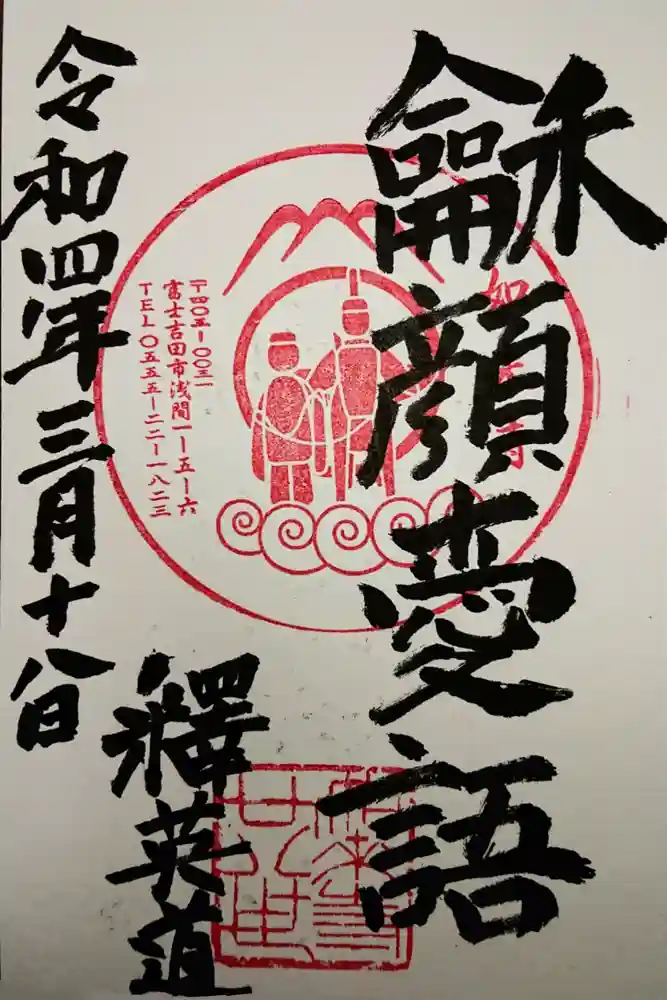 龢顔愛語
〒四〇五-〇〇三一
富士吉田市浅間一-五-六
TEL〇五五五-二二-一八二三
令和四年三月十八日
釋英道